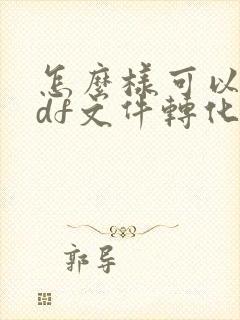 怎麼樣可以
df文件轉化
郭导